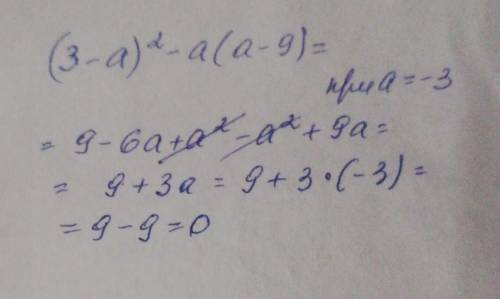 (3-a)² - a(a-9) =
при a = -3
= 9 - 6a + a² - a² + 9a =
= 9 + 3a = 9 + 3·(-3) =
= 9 - 9 = 0